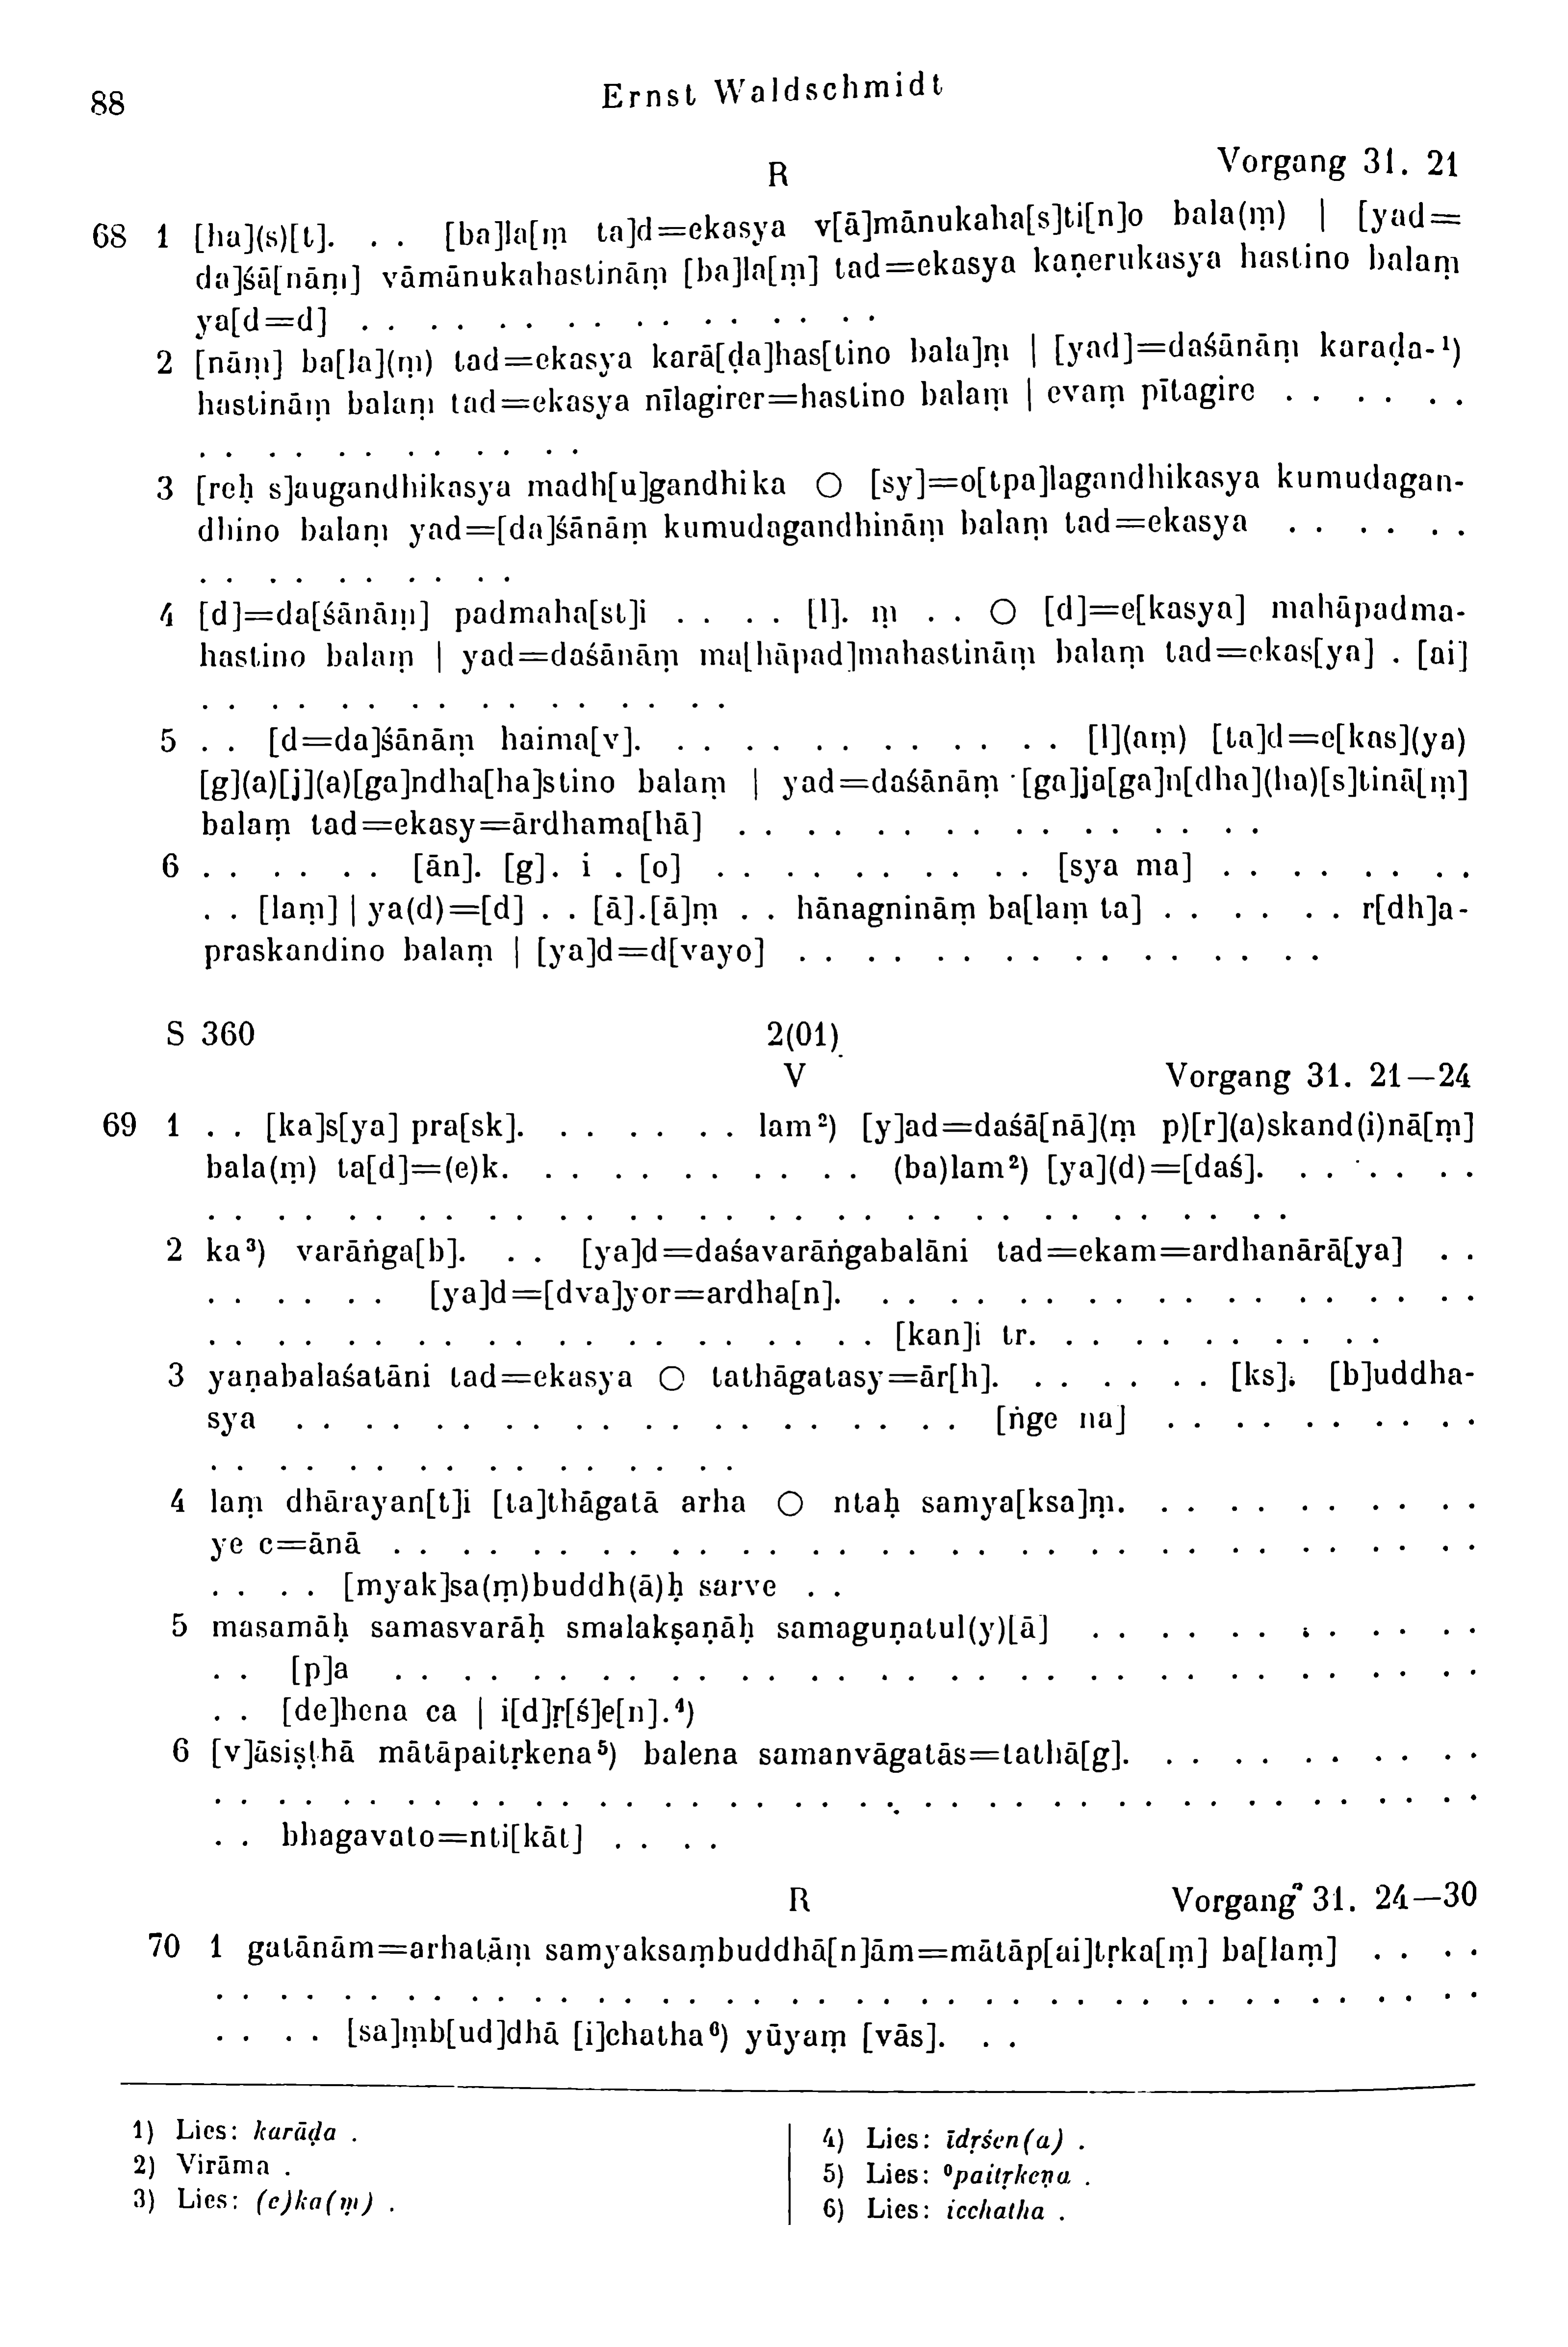 88
Ernst Waldschmidt
R
Vorgang 31. 21
68 1 [ha](s)[t]. . . [ba]la[ṃ ta]d=ekasya v[ā]mānukaha[s]ti[n]o bala(ṃ) | [yad=
da]śā[nāṃ] vāmānukahastināṃ [ba]la[ṃ] tad=ekasya kaṇerukasya hastino balaṃ
ya[d=d] . . . . . . . . . . . . . . . .
2 [nāṃ] ba[la](ṃ) tad=ekasya karā[ḍa]has[tino bala]ṃ | [yad]=daśānāṃ karaḍa-¹)
hastināṃ balaṃ tad=ekasya nīlagirer=hastino balaṃ | evaṃ pītagire . . . . . .
. . . . . . . . . . . .
3 [reḥ s]augandhikasya madh[u]gandhika ○ [sy]=o[tpa]lagandhikasya kumudagan-
dhino balaṃ yad=[da]śānāṃ kumudagandhināṃ balaṃ tad=ekasya . . . . . .
. . . . . . . . . .
4 [d]=da[śānāṃ] padmaha[st]i . . . . [l]. ṃ . . ○ [d]=e[kasya] mahāpadma-
hastino balaṃ | yad=daśānāṃ ma[hāpad]mahastināṃ balaṃ tad=ekas[ya] . [ai]
. . . . . . . . . . . . . . . .
5 . . [d=da]śānāṃ haima[v]. . . . . . . . . . . . . [l](aṃ) [ta]d=e[kas](ya)
[g](a)[j](a)[ga]ndha[ha]stino balaṃ | yad=daśānāṃ [ga]ja[ga]n[dha](ha)[s]tinā[ṃ]
balaṃ tad=ekasy=ārdhama[hā] . . . . . . . . . . . . . . . .
6 . . . . . . [ān]. [g]. i . [o] . . . . . . . . . . [sya ma] . . . . . . . .
. . [laṃ] | ya(d)=[d] . . [ā].[ā]ṃ . . hānagnināṃ ba[laṃ ta] . . . . . . r[dh]a-
praskandino balaṃ | [ya]d=d[vayo] . . . . . . . . . . . . . . . .
S 360
2(01)
V
Vorgang 31. 21—24
69 1 . . [ka]s[ya] pra[sk]. . . . . . . lam²) [y]ad=daśā[nā](ṃ p)[r](a)skand(i)nā[ṃ]
bala(ṃ) ta[d]=(e)k. . . . . . . . . . . (ba)lam²) [ya](d)=[daś]. . . . . . .
. . . . . . . . . . . . . . . . . . . . . . . . . . . . . . . .
2 ka³) varāṅga[b]. . . [ya]d=daśavarāṅgabalāni tad=ekam=ardhanārā[ya] . .
. . . . . . [ya]d=[dva]yor=ardha[n]. . . . . . . . . . . . . . . . . . .
. . . . . . . . . . . . . . . . . . . . [kan]i tr. . . . . . . . . . .
3 yaṇabalaśatāni tad=ekasya ○ tathāgatasy=ār[h]. . . . . . . [ks]. [b]uddha-
sya . . . . . . . . . . . . . . . . . . . . [ṅge na] . . . . . . . . .
. . . . . . . . . . . . . . . .
4 laṃ dhārayan[t]i [ta]thāgatā arha ○ ntaḥ samya[ksa]ṃ. . . . . . . . . . .
ye c=ānā . . . . . . . . . . . . . . . . . . . . . . . . . . . . . . . .
. . . . [myak]sa(ṃ)buddh(ā)ḥ sarve . .
5 masamāḥ samasvarāḥ smalakṣaṇāḥ samaguṇatul(y)[ā] . . . . . . . . . . . .
. . [p]a . . . . . . . . . . . . . . . . . . . . . . . . . . . . . . . .
. . [de]hena ca | i[d]ṛ[ś]e[n].⁴)
6 [v]āsiṣṭhā mātāpaitṛkena⁵) balena samanvāgatās=tathā[g]. . . . . . . . . . .
. . . . . . . . . . . . . . . . . . . . . . . . . . . . . . . . . . . . . . . .
. . bhagavato=nti[kāt] . . . .
R
Vorgang 31. 24—30
70 1 gatānām=arhatāṃ samyaksaṃbuddhā[n]ām=mātāp[ai]tṛka[ṃ] ba[laṃ] . . . .
. . . . . . . . . . . . . . . . . . . . . . . . . . . . . . . . . . . . . . . .
. . . . [sa]ṃb[ud]dhā [i]chatha⁶) yūyaṃ [vās]. . .
1) Lies: karāḍa .
2) Virāma .
3) Lies: (e)ka(ṃ) .
4) Lies: īdṛśen(a) .
5) Lies: °paitṛkeṇa .
6) Lies: icchatha .